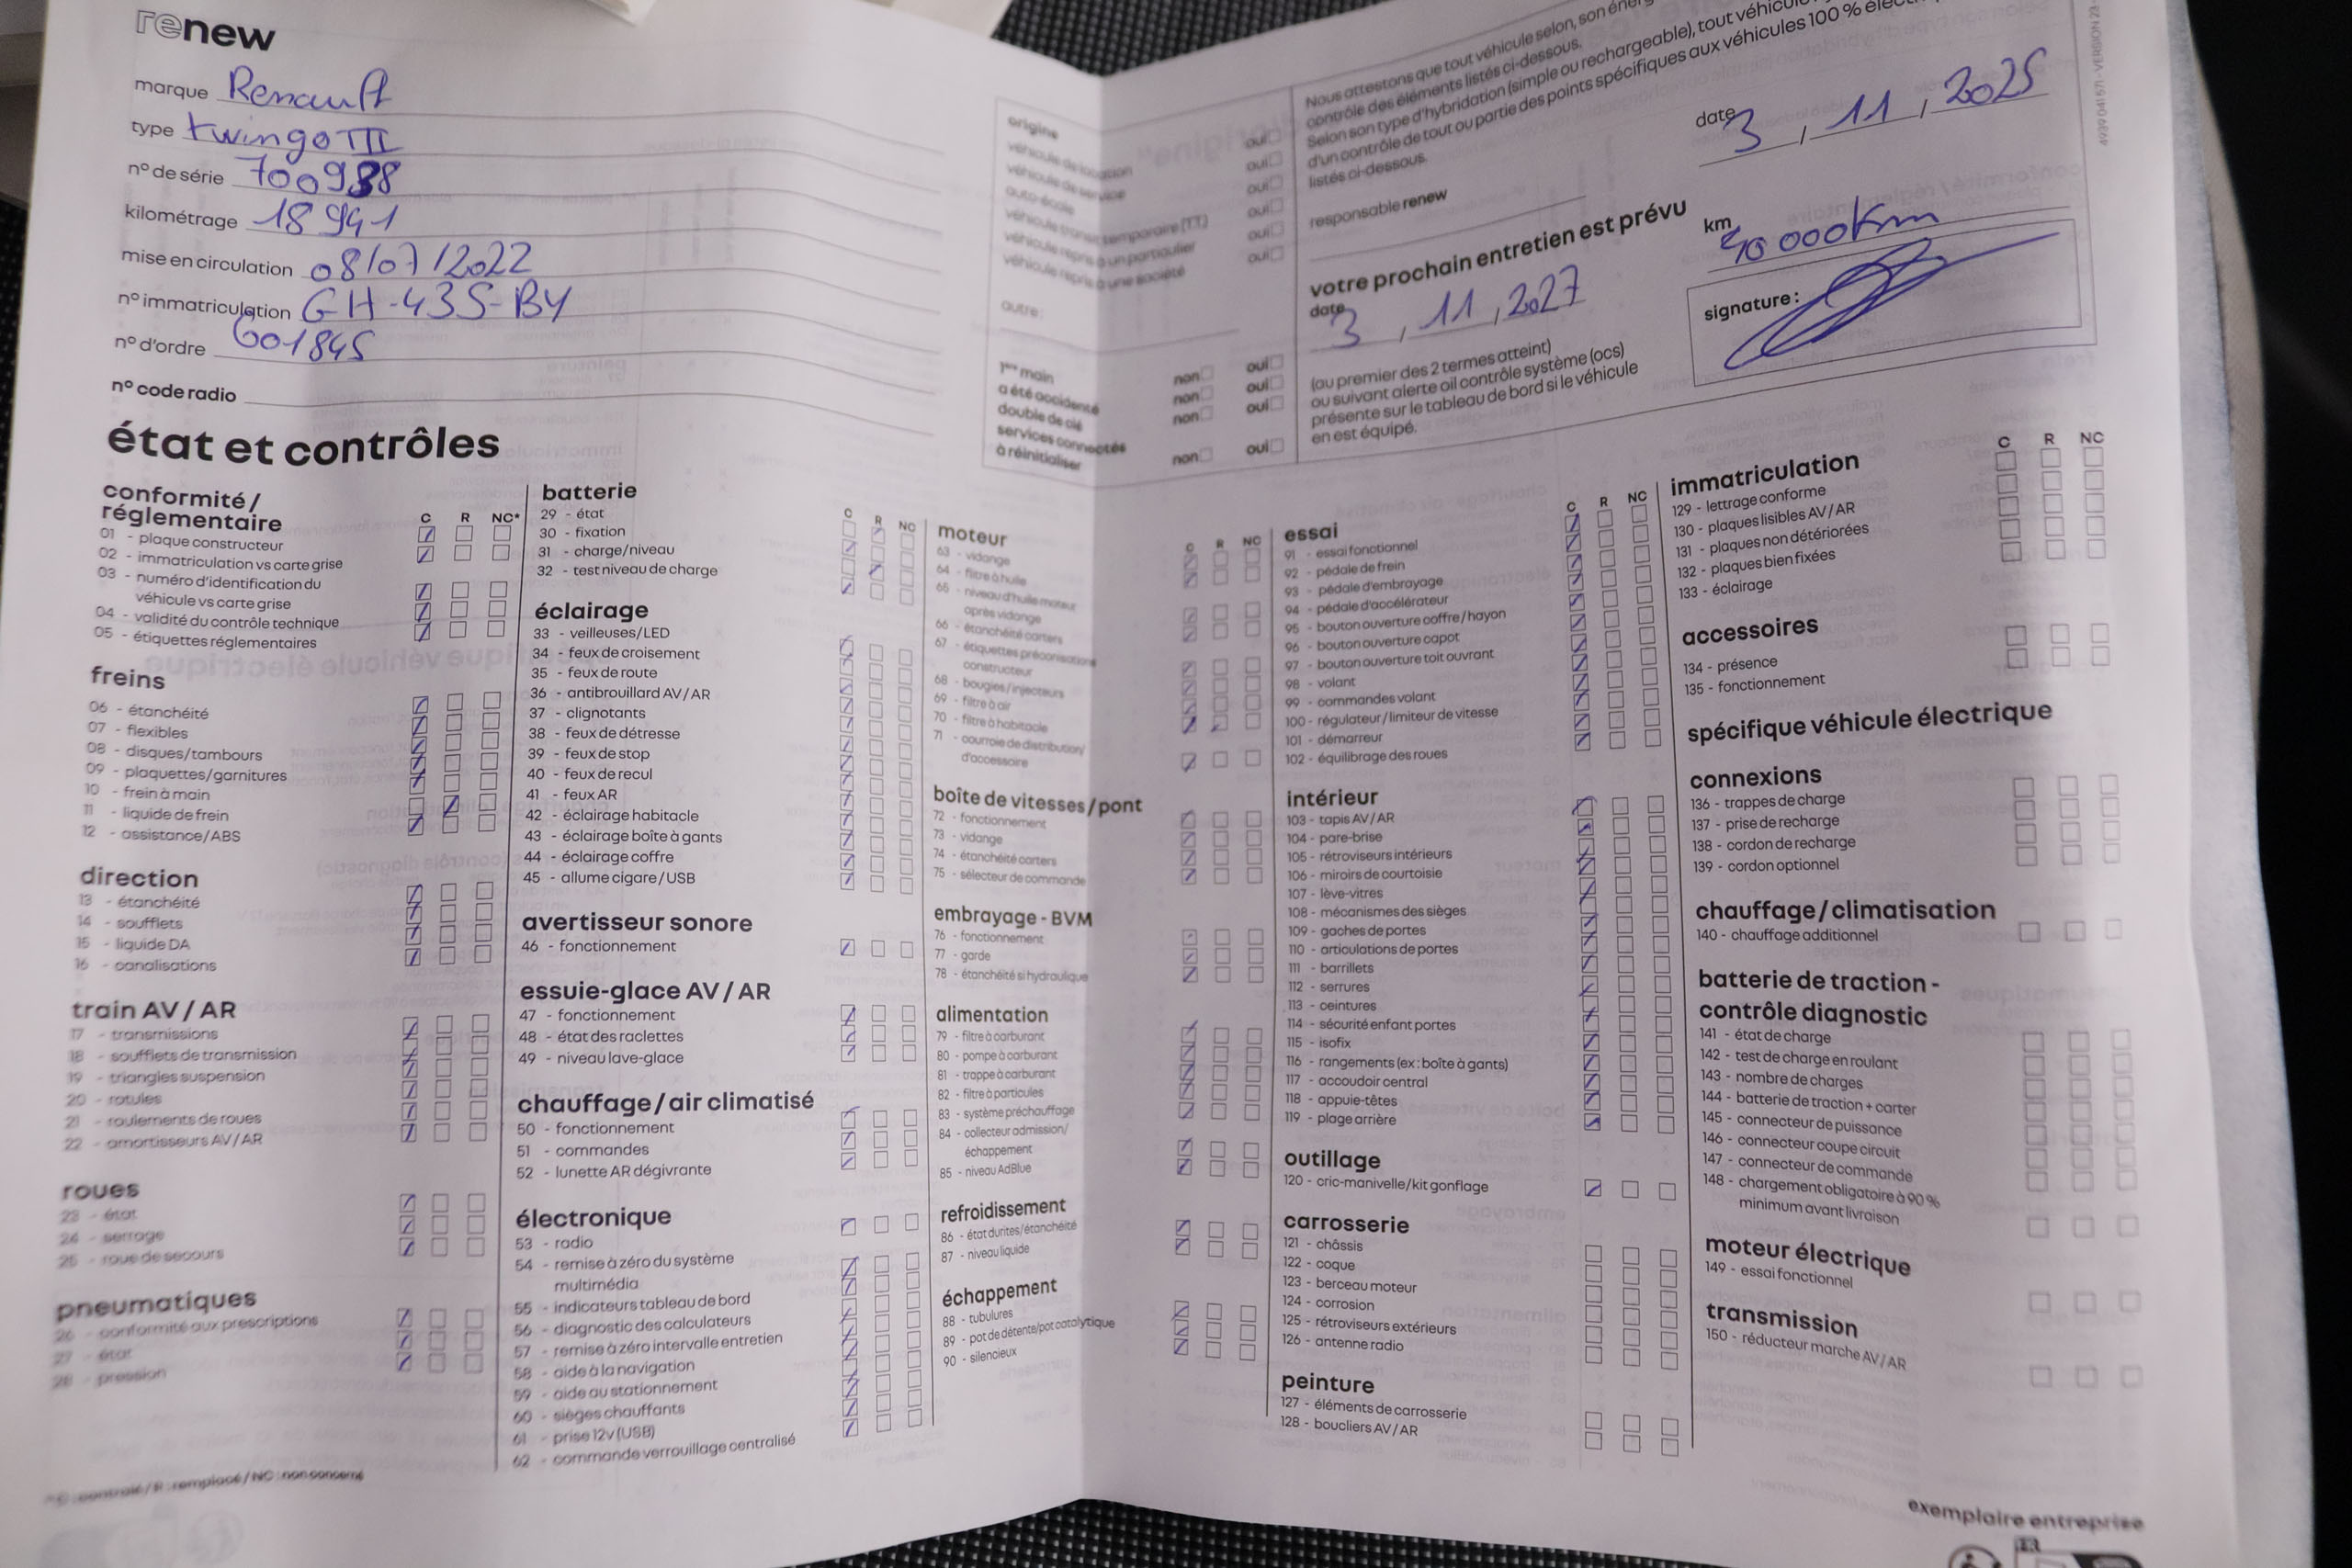 renew
marque Renault
type twingo III
n° de série 700938
kilométrage 18 941
mise en circulation 08/07/2022
n° immatriculation GH-435-BY
n° d'ordre 601845
n° code radio
origine
véhicule de location oui
véhicule de service oui
auto-école oui
véhicule transit temporaire (TT) oui
véhicule repris à un particulier oui
véhicule repris à une société oui
autre :
1ère main non oui
a été accidenté non oui
double de clé non oui
services connectés
à réinitialiser non oui
Nous attestons que tout véhicule selon, son
contrôle des éléments listés ci-dessous.
Selon son type d'hybridation (simple ou rechargeable), tout
d'un contrôle de tout ou partie des points spécifiques aux véhicules 100 %
listés ci-dessous.
date 3, 11, 2025
responsable renew
votre prochain entretien est prévu
date 3, 11, 2027
km
000 Km
(au premier des 2 termes atteint)
ou suivant alerte oil contrôle système (ocs)
présente sur le tableau de bord si le véhicule
en est équipé.
signature :
VERSION 23
état et contrôles
conformité /
réglementaire
C R NC*
01 - plaque constructeur
02 - immatriculation vs carte grise
03 - numéro d'identification du
véhicule vs carte grise
04 - validité du contrôle technique
05 - étiquettes réglementaires
freins
06 - étanchéité
07 - flexibles
08 - disques/tambours
09 - plaquettes/garnitures
10 - frein à main
11 - liquide de frein
12 - assistance/ABS
direction
13 - étanchéité
14 - soufflets
15 - liquide DA
16 - canalisations
train AV / AR
17 - transmissions
18 - soufflets de transmission
19 - triangles suspension
20 - rotules
21 - roulements de roues
22 - amortisseurs AV/AR
roues
23 - état
24 - serrage
25 - roue de secours
pneumatiques
26 - conformité aux prescriptions
27 - état
28 - pression
*C : contrôlé / R : remplacé / NC : non concerné
batterie
C R NC
29 - état
30 - fixation
31 - charge/niveau
32 - test niveau de charge
éclairage
33 - veilleuses/LED
34 - feux de croisement
35 - feux de route
36 - antibrouillard AV/AR
37 - clignotants
38 - feux de détresse
39 - feux de stop
40 - feux de recul
41 - feux AR
42 - éclairage habitacle
43 - éclairage boîte à gants
44 - éclairage coffre
45 - allume cigare/USB
avertisseur sonore
46 - fonctionnement
essuie-glace AV / AR
47 - fonctionnement
48 - état des raclettes
49 - niveau lave-glace
chauffage / air climatisé
50 - fonctionnement
51 - commandes
52 - lunette AR dégivrante
électronique
53 - radio
54 - remise à zéro du système
multimédia
55 - indicateurs tableau de bord
56 - diagnostic des calculateurs
57 - remise à zéro intervalle entretien
58 - aide à la navigation
59 - aide au stationnement
60 - sièges chauffants
61 - prise 12v (USB)
62 - commande verrouillage centralisé
moteur
C R NC
63 - vidange
64 - filtre à huile
65 - niveau d'huile moteur
après vidange
66 - étanchéité carters
67 - étiquettes préconisations
constructeur
68 - bougies/injecteurs
69 - filtre à air
70 - filtre à habitacle
71 - courroie de distribution/
d'accessoire
boîte de vitesses / pont
72 - fonctionnement
73 - vidange
74 - étanchéité carters
75 - sélecteur de commande
embrayage - BVM
76 - fonctionnement
77 - garde
78 - étanchéité si hydraulique
alimentation
79 - filtre à carburant
80 - pompe à carburant
81 - trappe à carburant
82 - filtre à particules
83 - système préchauffage
84 - collecteur admission/
échappement
85 - niveau AdBlue
refroidissement
86 - état durites/étanchéité
87 - niveau liquide
échappement
88 - tubulures
89 - pot de détente/pot catalytique
90 - silencieux
essai
C R NC
91 - essai fonctionnel
92 - pédale de frein
93 - pédale d'embrayage
94 - pédale d'accélérateur
95 - bouton ouverture coffre/hayon
96 - bouton ouverture capot
97 - bouton ouverture toit ouvrant
98 - volant
99 - commandes volant
100 - régulateur/limiteur de vitesse
101 - démarreur
102 - équilibrage des roues
intérieur
103 - tapis AV/AR
104 - pare-brise
105 - rétroviseurs intérieurs
106 - miroirs de courtoisie
107 - lève-vitres
108 - mécanismes des sièges
109 - gaches de portes
110 - articulations de portes
111 - barrillets
112 - serrures
113 - ceintures
114 - sécurité enfant portes
115 - isofix
116 - rangements (ex : boîte à gants)
117 - accoudoir central
118 - appuie-têtes
119 - plage arrière
outillage
120 - cric-manivelle/kit gonflage
carrosserie
121 - châssis
122 - coque
123 - berceau moteur
124 - corrosion
125 - rétroviseurs extérieurs
126 - antenne radio
peinture
127 - éléments de carrosserie
128 - boucliers AV/AR
immatriculation
C R NC
129 - lettrage conforme
130 - plaques lisibles AV/AR
131 - plaques non détériorées
132 - plaques bien fixées
133 - éclairage
accessoires
134 - présence
135 - fonctionnement
spécifique véhicule électrique
connexions
136 - trappes de charge
137 - prise de recharge
138 - cordon de recharge
139 - cordon optionnel
chauffage / climatisation
140 - chauffage additionnel
batterie de traction -
contrôle diagnostic
141 - état de charge
142 - test de charge en roulant
143 - nombre de charges
144 - batterie de traction + carter
145 - connecteur de puissance
146 - connecteur coupe circuit
147 - connecteur de commande
148 - chargement obligatoire à 90 %
minimum avant livraison
moteur électrique
149 - essai fonctionnel
transmission
150 - réducteur marche AV/AR
exemplaire entreprise